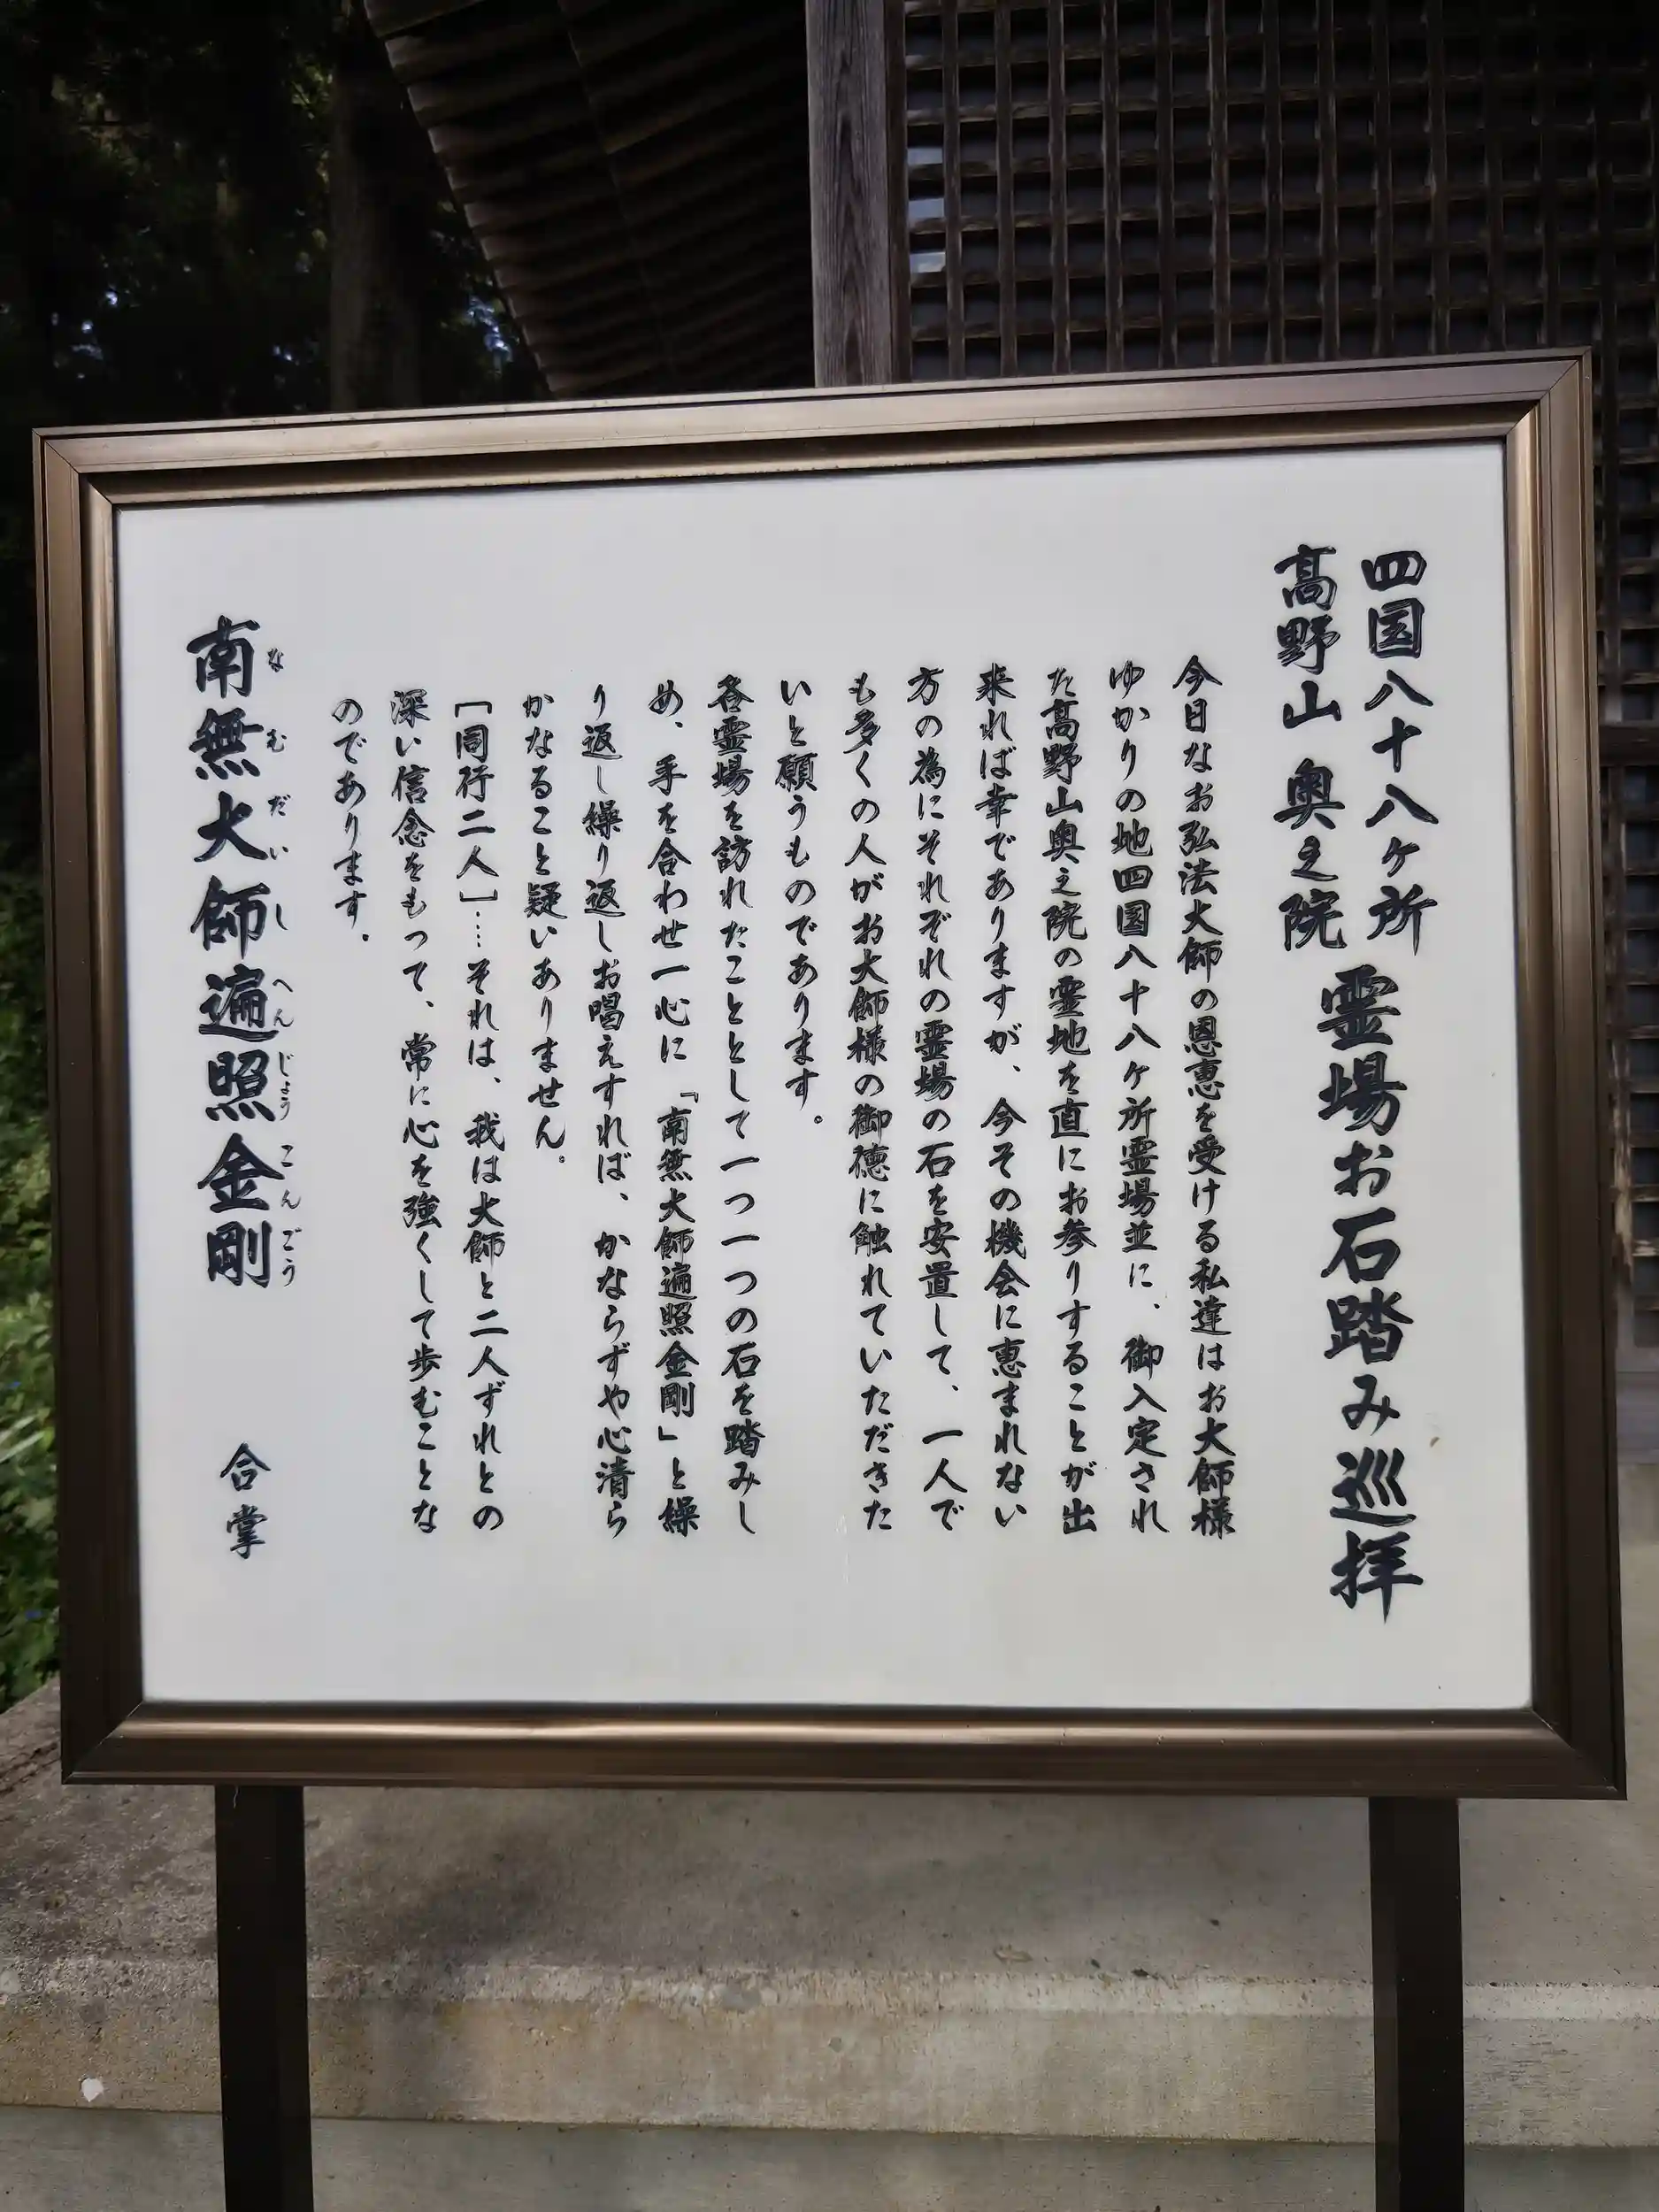 四国八十八ヶ所
高野山 奥之院
霊場お石踏み巡拝
今日なお弘法大師の恩恵を受ける私達はお大師様
ゆかりの地四国八十八ヶ所霊場並に、御入定され
た高野山奥之院の霊地を直にお参りすることが出
来れば幸でありますが、今その機会に恵まれない
方の為にそれぞれの霊場の石を安置して、一人で
も多くの人がお大師様の御徳に触れていただきた
いと願うものであります。
各霊場を訪れたこととして一つ一つの石を踏みし
め、手を合わせ一心に「南無大師遍照金剛」と繰
り返し繰り返しお唱えすれば、かならずや心清ら
かなること疑いありません。
[同行二人]…それは、我は大師と二人ずれとの
深い信念をもって、常に心を強くして歩むことな
のであります。
南無大師遍照金剛
なむだいしへんじょうこんごう
合掌